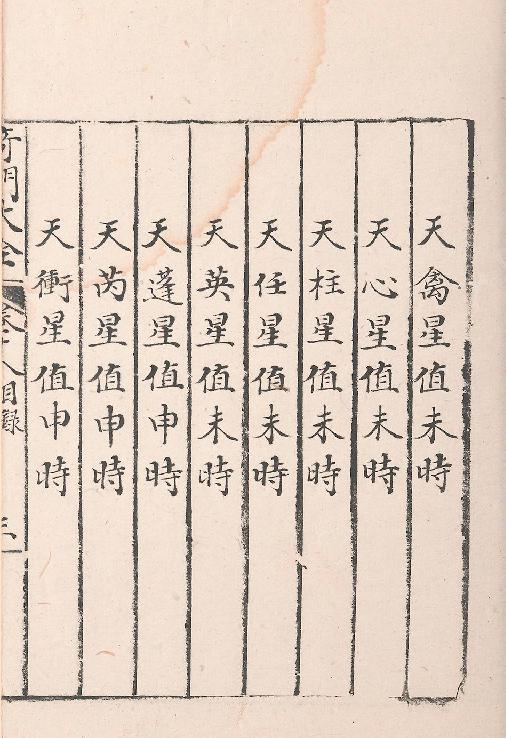 天禽星值未時
天心星值未時
天柱星值未時
天任星值未時
天英星值未時
天蓬星值申時
天芮星值申時
天衝星值申時
奇門大全 卷十八目錄 三